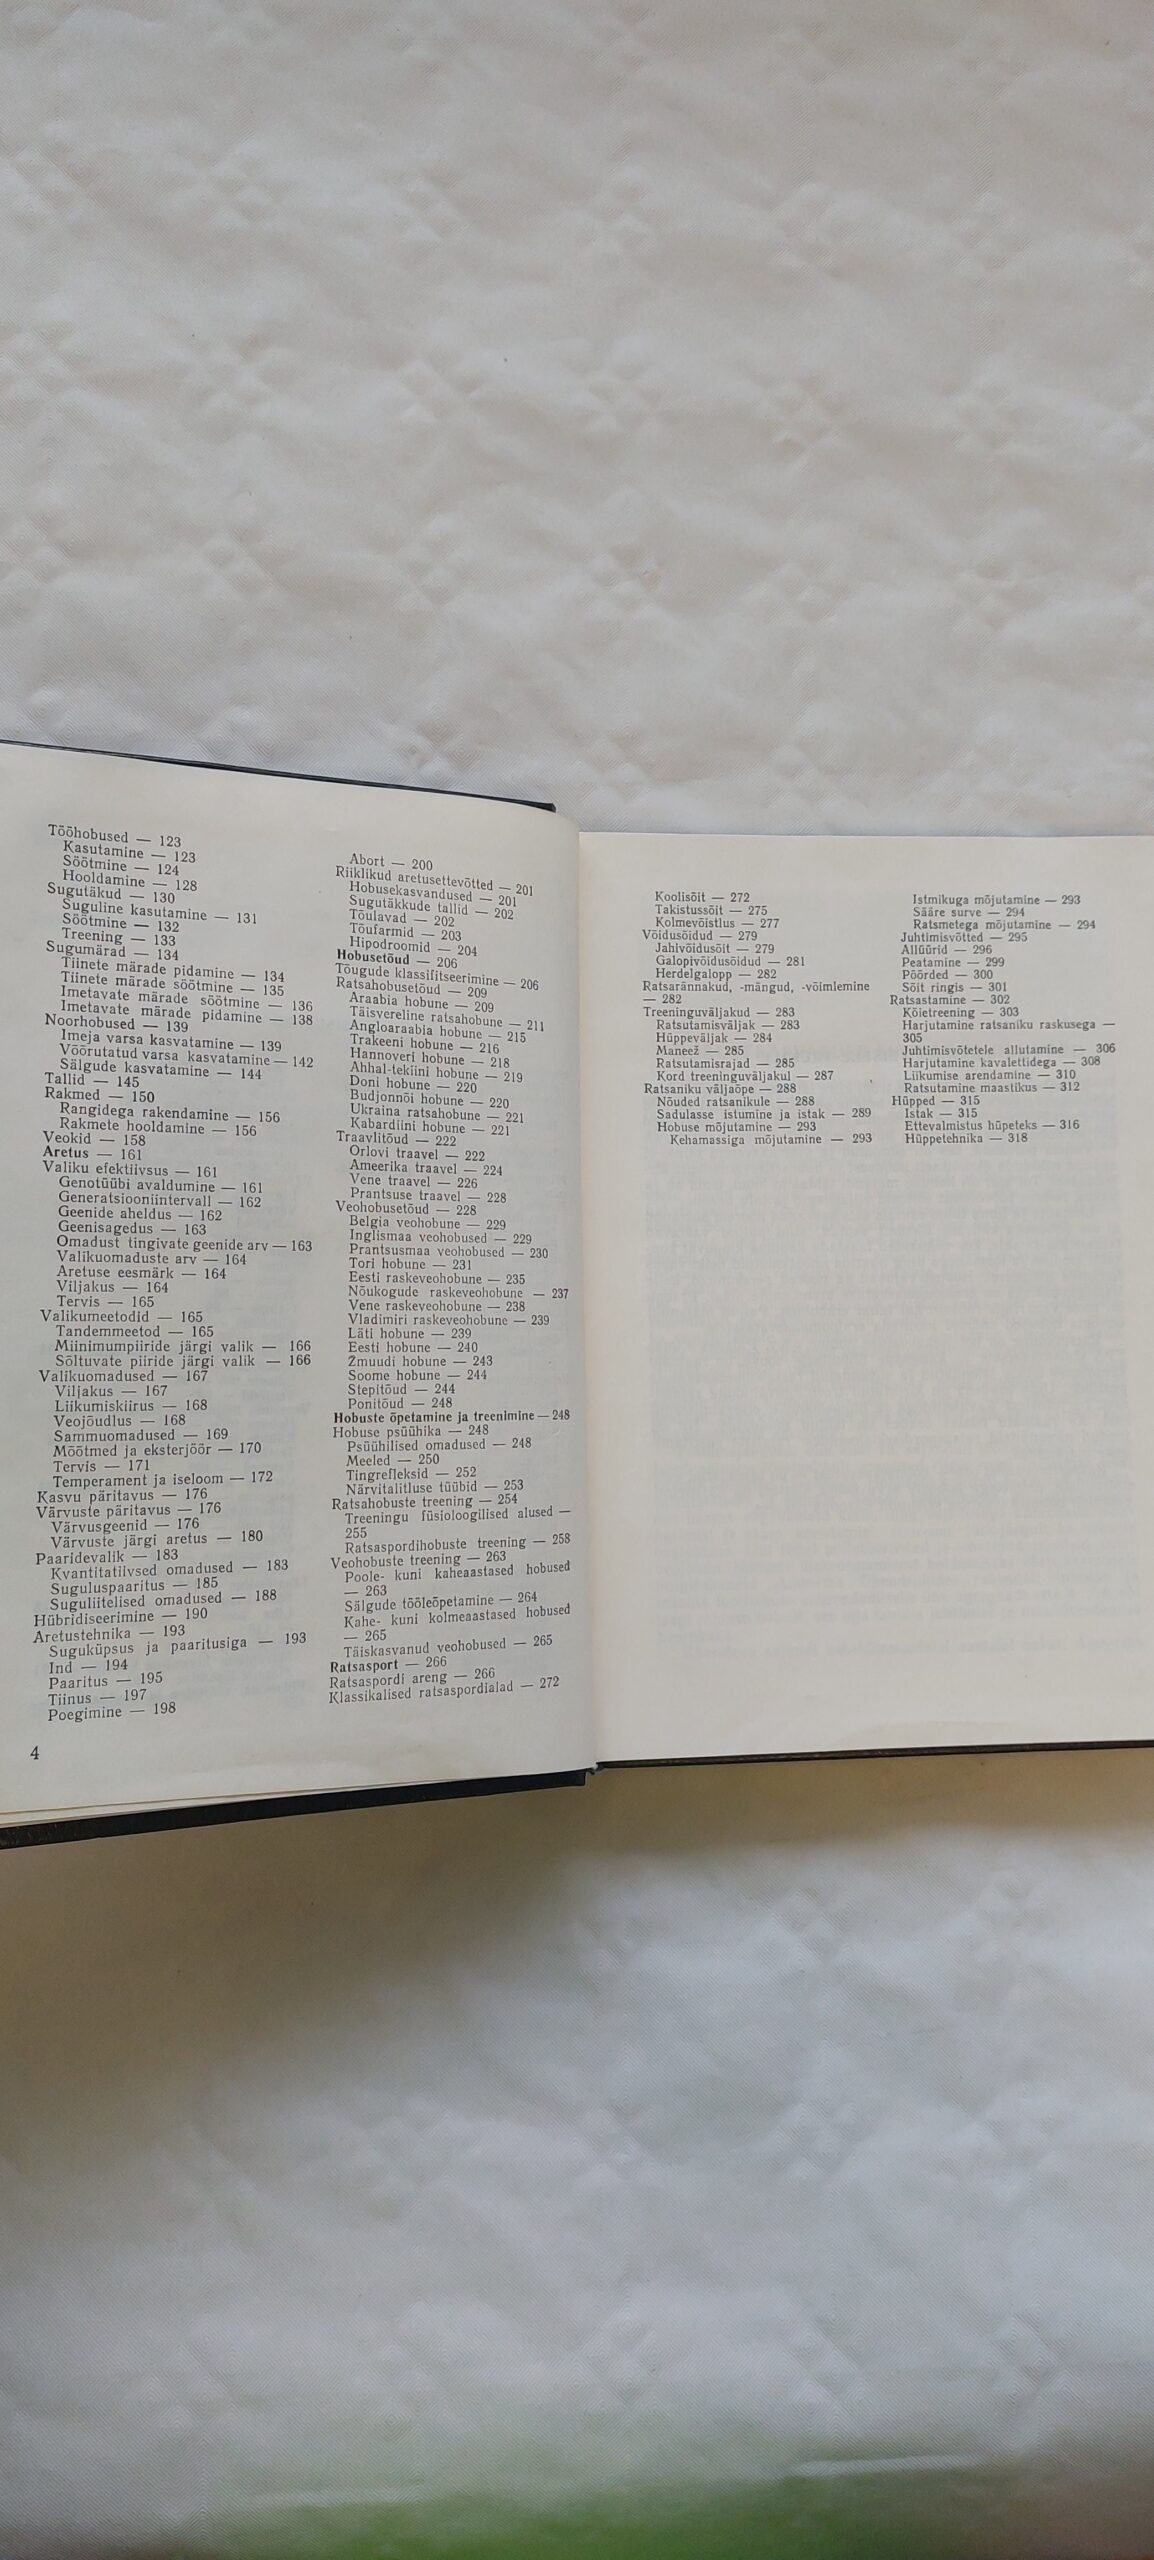 Tööhobused — 123
Kasutamine — 123
Söötmine — 124
Hooldamine — 128
Sugutäkud — 130
Suguline kasutamine — 131
Söötmine — 132
Treening — 133
Sugumärad — 134
Tiinete märade pidamine — 134
Tiinete märade söötmine — 135
Imetavate märade söötmine — 136
Imetavate märade pidamine — 138
Noorhobused — 139
Imeja varsa kasvatamine — 139
Võõrutatud varsa kasvatamine — 142
Sälgude kasvatamine — 144
Tallid — 145
Rakmed — 150
Rangidega rakendamine — 156
Rakmete hooldamine — 156
Veokid — 158
Aretus — 161
Valiku efektiivsus — 161
Genotüübi avaldumine — 161
Generatsiooniintervall — 162
Geenide aheldus — 162
Geenisagedus — 163
Omadust tingivate geenide arv — 163
Valikuomaduste arv — 164
Aretuse eesmärk — 164
Viljakus — 164
Tervis — 165
Valikumeetodid — 165
Tandemmeetod — 165
Miinimumpiiride järgi valik — 166
Sõltuvate piiride järgi valik — 166
Valikuomadused — 167
Viljakus — 167
Liikumiskiirus — 168
Veojõudlus — 168
Sammuomadused — 169
Mõõtmed ja eksterjöör — 170
Tervis — 171
Temperament ja iseloom — 172
Kasvu päritavus — 176
Värvuste päritavus — 176
Värvusgeenid — 176
Värvuste järgi aretus — 180
Paaridevalik — 183
Kvantitatiivsed omadused — 183
Suguluspaaritus — 185
Suguliitelised omadused — 188
Hübridiseerimine — 190
Aretustehnika — 193
Suguküpsus ja paaritusiga — 193
Ind — 194
Paaritus — 195
Tiinus — 197
Poegimine — 198
4
Abort — 200
Riiklikud aretusettevõtted — 201
Hobusekasvandused — 201
Sugutäkkude tallid — 202
Tõulavad — 202
Tõufarmid — 203
Hipodroomid — 204
Hobusetõud — 206
Tõugude klassifitseerimine — 206
Ratsahobusetõud — 209
Araabia hobune — 209
Täisvereline ratsahobune — 211
Angloaraabia hobune — 215
Trakeeni hobune — 216
Hannoveri hobune — 218
Ahhal-tekiini hobune — 219
Doni hobune — 220
Budjonnõi hobune — 220
Ukraina ratsahobune — 221
Kabardiini hobune — 221
Traavlitõud — 222
Orlovi traavel — 222
Ameerika traavel — 224
Vene traavel — 226
Prantsuse traavel — 228
Veohobusetõud — 228
Belgia veohobune — 229
Inglismaa veohobused — 229
Prantsusmaa veohobused — 230
Tori hobune — 231
Eesti raskeveohobune — 235
Nõukogude raskeveohobune — 237
Vene raskeveohobune — 238
Vladimiri raskeveohobune — 239
Läti hobune — 239
Eesti hobune — 240
Žmuudi hobune — 243
Soome hobune — 244
Stepitõud — 244
Ponitõud — 248
Hobuste õpetamine ja treenimine — 248
Hobuse psüühika — 248
Psüühilised omadused — 248
Meeled — 250
Tingrefleksid — 252
Närvitalitluse tüübid — 253
Ratsahobuste treening — 254
Treeningu füsioloogilised alused —
255
Ratsaspordihobuste treening — 258
Veohobuste treening — 263
Poole- kuni kaheaastased hobused
— 263
Sälgude tööleõpetamine — 264
Kahe- kuni kolmeaastased hobused
— 265
Täiskasvanud veohobused — 265
Ratsasport — 266
Ratsaspordi areng — 266
Klassikalised ratsaspordialad — 272
Koolisõit — 272
Takistussõit — 275
Kolmevõistlus — 277
Võidusõidud — 279
Jahivõidusõit — 279
Galopivõidusõidud — 281
Herdelgalopp — 282
Ratsarännakud, -mängud, -võimlemine
— 282
Treeninguväljakud — 283
Ratsutamisväljak — 283
Hüppeväljak — 284
Maneež — 285
Ratsutamisrajad — 285
Kord treeninguväljakul — 287
Ratsaniku väljaõpe — 288
Nõuded ratsanikule — 288
Sadulasse istumine ja istak — 289
Hobuse mõjutamine — 293
Kehamassiga mõjutamine — 293
Istmikuga mõjutamine — 293
Sääre surve — 294
Ratsmetega mõjutamine — 294
Juhtimisvõtted — 295
Allüürid — 296
Peatamine — 299
Pöörded — 300
Sõit ringis — 301
Ratsastamine — 302
Köietreening — 303
Harjutamine ratsaniku raskusega —
305
Juhtimisvõtetele allutamine — 306
Harjutamine kavalettidega — 308
Liikumise arendamine — 310
Ratsutamine maastikus — 312
Hüpped — 315
Istak — 315
Ettevalmistus hüpeteks — 316
Hüppetehnika — 318